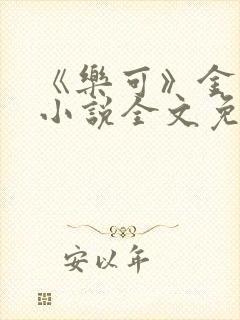 《樂可》金
小說全文免
安以年